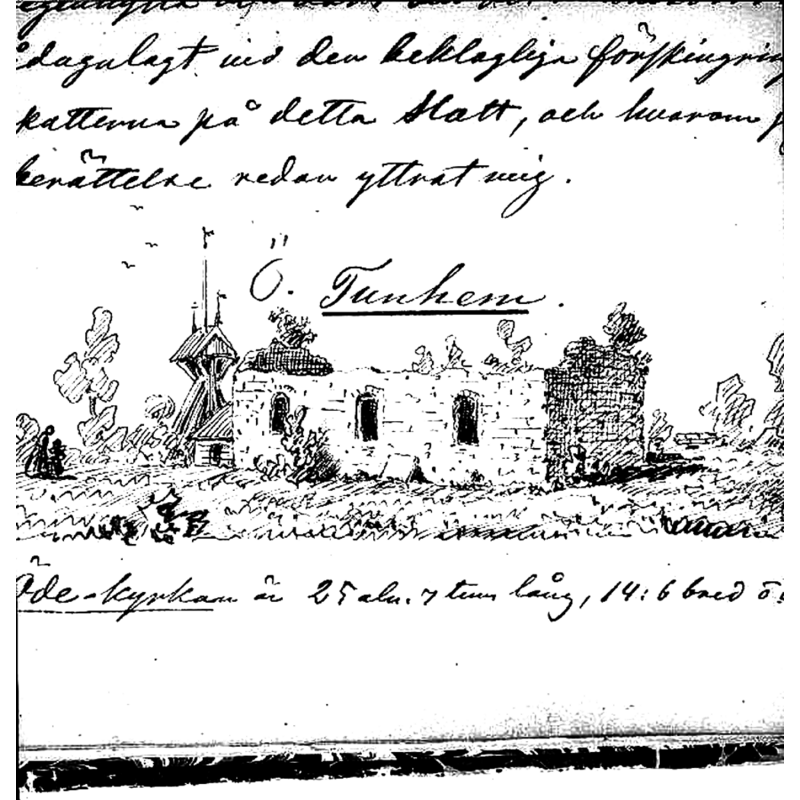 ådagalagt vid den beklagliga förskingring
skatterna på detta Slott, och hvarom
berättelse redan yttrat mig.
Ö. Tunhem.
Öde-kyrkan är 25 aln. 7 tum lång, 14:6 bred ö.